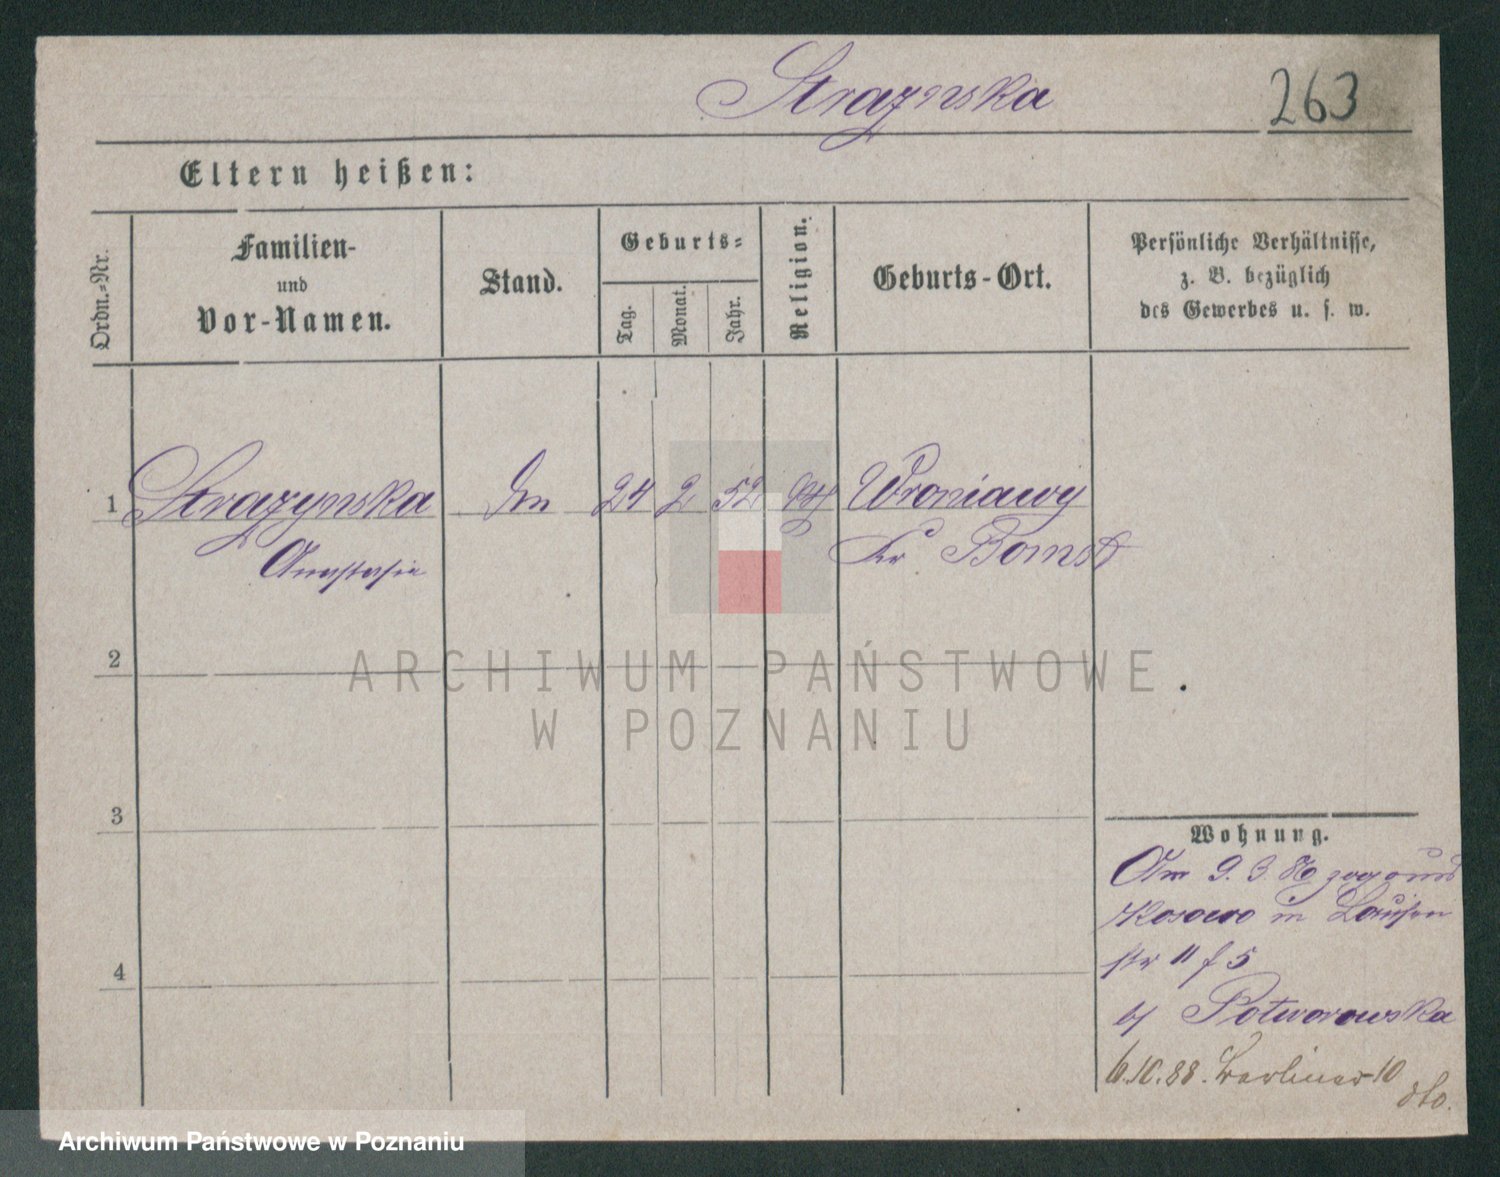 Strazynska
263
Eltern heißen:
Ordn.-Nr.
Familien-
und
Vor-Namen.
Stand.
Geburts-
Tag.
Monat.
Jahr.
Religion.
Geburts-Ort.
Persönliche Verhältnisse,
z. B. bezüglich
des Gewerbes u. s. w.
1 Strazynska 24 2 52 Wroniawy
Anastasia Kr Bomst
2
ARCHIWUM PAŃSTWOWE
W POZNANIU
3
Wohnung.
Am 9. 3. zog aus
Kosowo in Louisen
str 11 f 5
b/ Potworowska
4
6.10.88. Berliner 10
dto.
Archiwum Państwowe w Poznaniu